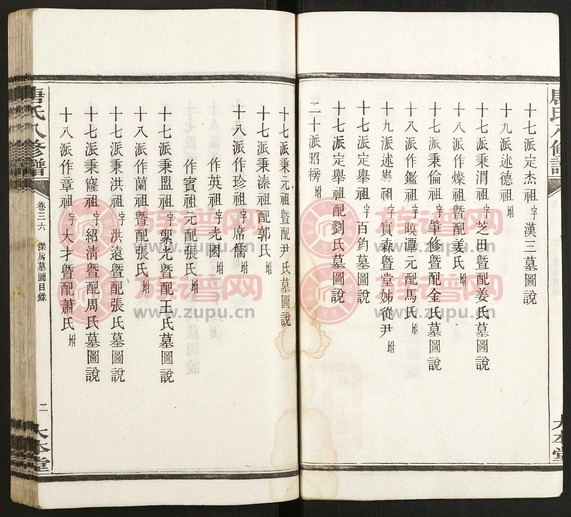 唐氏八修譜
十七派定杰祖字漢三墓圖說
十九派述德祖坿
十八派作燦祖暨配姜氏坿
十七派秉渭祖字芝田暨配姜氏墓圖說
十七派秉倫祖字肇修暨配金氏墓圖說
十八派作鑑祖字曉潭元配馬氏坿
十九派述 祖字貴森暨堂姊從尹坿
十七派定舉祖字百鈞墓圖說
十七派定舉祖配劉氏墓圖說
二十派昭榜坿
大本堂
十七派秉元祖暨配尹氏墓圖說
十七派秉溱祖配郭氏坿
十八派作珍祖字席儒坿
作英祖字光國坿
作賓祖元配張氏坿
十七派秉盟祖字 光暨配王氏墓圖說
十八派作蘭祖暨配張氏坿
十七派秉洪祖字洪遠暨配張氏墓圖說
十七派秉窿祖字紹清暨配周氏墓圖說
十八派作章祖字大才暨配蕭氏坿
唐氏八修譜
卷三六
傑房墓圖目錄
二
大本堂
族譜网
www.zupu.cn
族譜网
www.zupu.cn